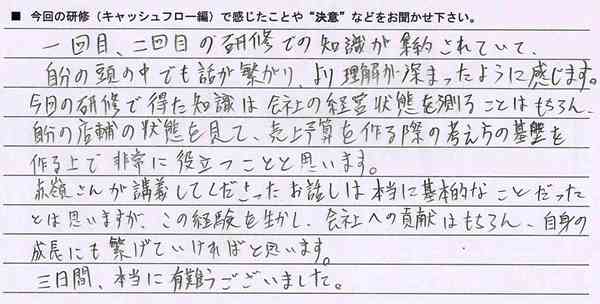 ■ 今回の研修（キャッシュフロー編）で感じたことや“決意”などをお聞かせ下さい。
一回目、二回目の研修での知識が集約されていて、
自分の頭の中でも話が繋がり、より理解が深まったように感じます。
今回の研修で得た知識は会社の経営状態を測ることはもちろん、
自分の店舗の状態を見て、売上予算を作る際の考え方の基盤を
作る上で非常に役立つことと思います。
赤嶺さんが講義してくださったお話しは本当に基本的なことだった
とは思いますが、この経験を生かし、会社への貢献はもちろん、自身の
成長にも繋げていければと思います。
三日間、本当に有難うございました。